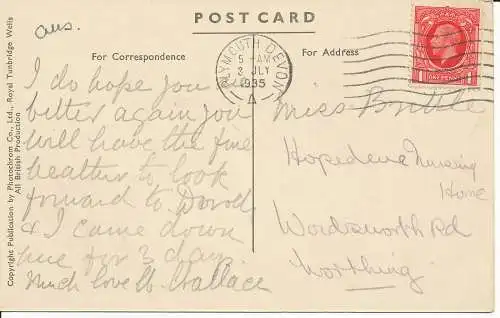 ans.
POST CARD
For Correspondence
For Address
PLYMOUTH DEVON
5 - AM
2 JLY
1935
A
ONE PENNY
I do hope you are
better again you
will have the fine
weather to look
forward to
& I came down
here for 3 days.
Much love Wallace
Miss
Hopedene Nursing
Home
Wordsworth Rd
Worthing
Copyright Publication by Photochrom Co., Ltd., Royal Tunbridge Wells
All British Production